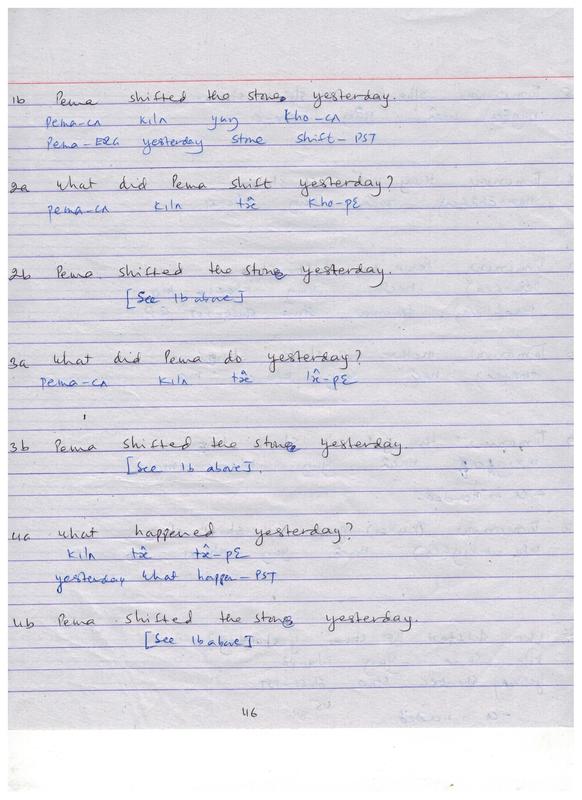 1b Pema shifted the stone yesterday.
pema-cʌ kilʌ yuŋ kho-cʌ
Pema-ERG yesterday stone shift-PST
2a What did Pema shift yesterday?
pema-cʌ kilʌ tɜ̂ kho-pɛ
2b Pema shifted the stone yesterday.
[See 1b above]
3a What did Pema do yesterday?
pema-cʌ kilʌ lɜ̂-pɛ
3b Pema shifted the stone yesterday.
[See 1b above].
4a What happened yesterday?
kilʌ
yesterday what happen-PST
4b Pema shifted the stone yesterday.
[See 1b above].
46